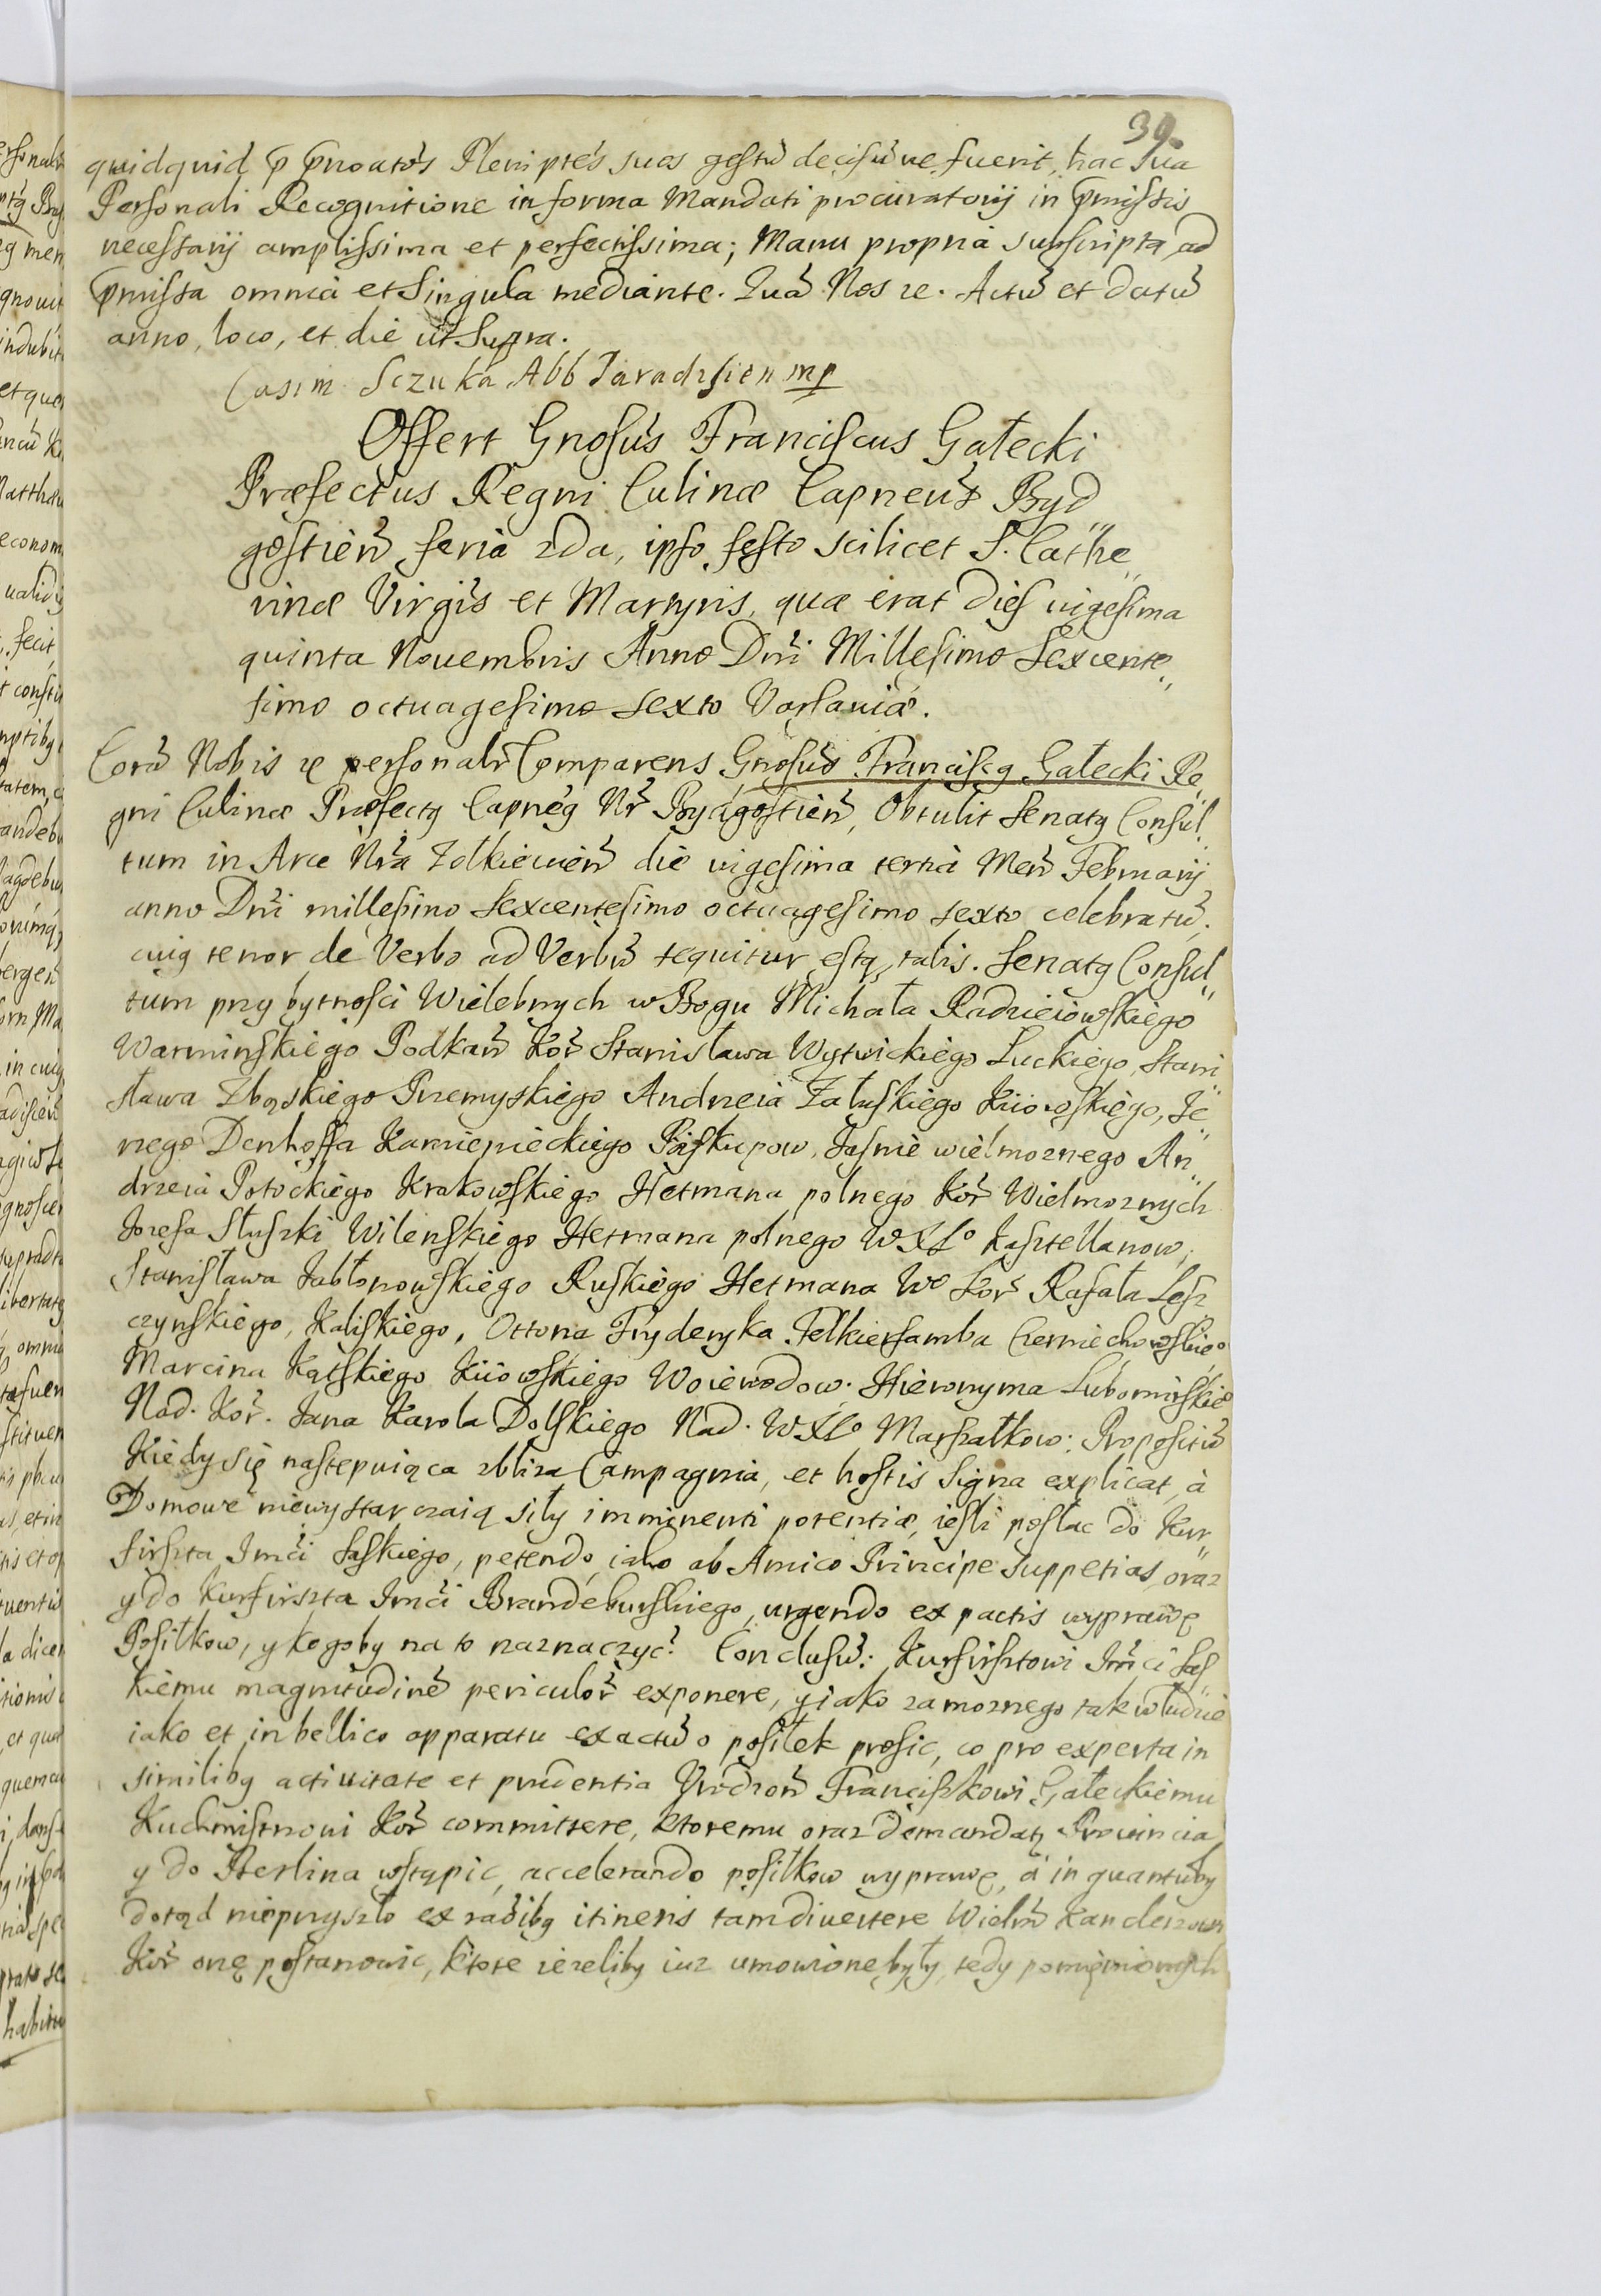 39.
quidquid p pnoatos Pleniptes suos gestũ decisũue fuerit, hac sua
Personali Recognitione in forma Mandati procuratorij in pmissis
necessarij amplissima et perfectissima; Manu propria subscripta ad
pmissa omnia et Singula mediante. Quã Nos ꝛc. Actũ et datũ
anno, loco, et die ut Supra.
Casim Sczuka Abb Paradisien mp
Offert Gnosus Franciscus Gałecki
Præfectus Regni Culinæ Capneus Byd
gostien feria 2da, ipso festo scilicet S. Cathe„
rinæ Virgis et Martyris, quæ erat dies uigesima
quinta Nouembris Anno Dni Millesimo Sexcente„
simo octuagesimo sexto Varsauiæ.
Corã Nobis ꝛc personalr Comparens Gnosus Franciscꝰ Gałecki Re„
gni Culinæ Præfectꝰ Capneꝰ Nr Bydgostien, Obtulit Senatꝰ Consul„
tum in Arce Nra Zolkieuien die uigesima tertia Men Februarij
anno Dni millesimo Sexcentesimo octuagesimo sexto celebratũ,
cuiꝰ tenor de Verbo ad Verbũ sequitur estꝗ talis. Senatꝰ Consul„
tum przy bytnosci Wielebnych w Bogu Michała Radzieiowskiego
Warminskiego Podkan Kor Stanisława Wytwickiego Luckiego, Stani„
sława Zbąskiego Przemyskiego Andrzeia Załuskiego Kiiowskiego, Je„
rzego Denhoffa Kamienieckiego Biskupow, Jasnie wielmoznego An„
drzeia Potockiego Krakowskiego Hetmana polnego Kor Wielmoznych
Jozefa Słuszki Wilenskiego Hetmana polnego WXLo Kasztellanow,
Stanisława Jabłonowskiego Ruskiego Hetmana Wo Kor Rafała Lesz„
czynskiego, Kaliskiego, Ottona Fryderyka Felkierzamba Czerniechowskieo
Marcina Kątskiego Kiiowskiego Woiewodow. Hieronyma Lubomirskieo
Nad. Kor. Jana Karola Dolskiego Nad. WXLo Marszałkow: Propositũ
Kiedy się nastepuiąca zbliza Campagnia, et hostis Signa explicat, a
Domowe niewystarczaią siły imminenti potentiæ, iesli posłac do Kur„
firszta Jmci Saskiego, petendo, iako ab Amico Principe suppetias, oraz
y do Kurfirszta Jmci Brandeburskiego, urgendo ex pactis wyprawę
Posiłkow, y kogoby na to naznaczyc? Conclusũ: Kurfirsztowi Jmci Sas„
kiemu magnitudine periculor exponere, y iako zamoznego tak w ludzie
iako et in bellico apparatu exactũ o posiłek prosic, co pro experta in
similibꝰ actiuitate et prudentia Vrodzon Franciszkowi Gałeckiemu
Kuchmistrzowi Kor committere, ktoremu oraz demandatꝰ Prouincia
y do Berlina wstąpic, accelerando posiłkow wyprawę, a in quantũby
dotąd nieprzyszło ex radibꝰ itineris tam diuertere Wielm Kanclerzowi
Kor onę postanowic, ktore iezeliby iuz umowione były, tedy pomienionych